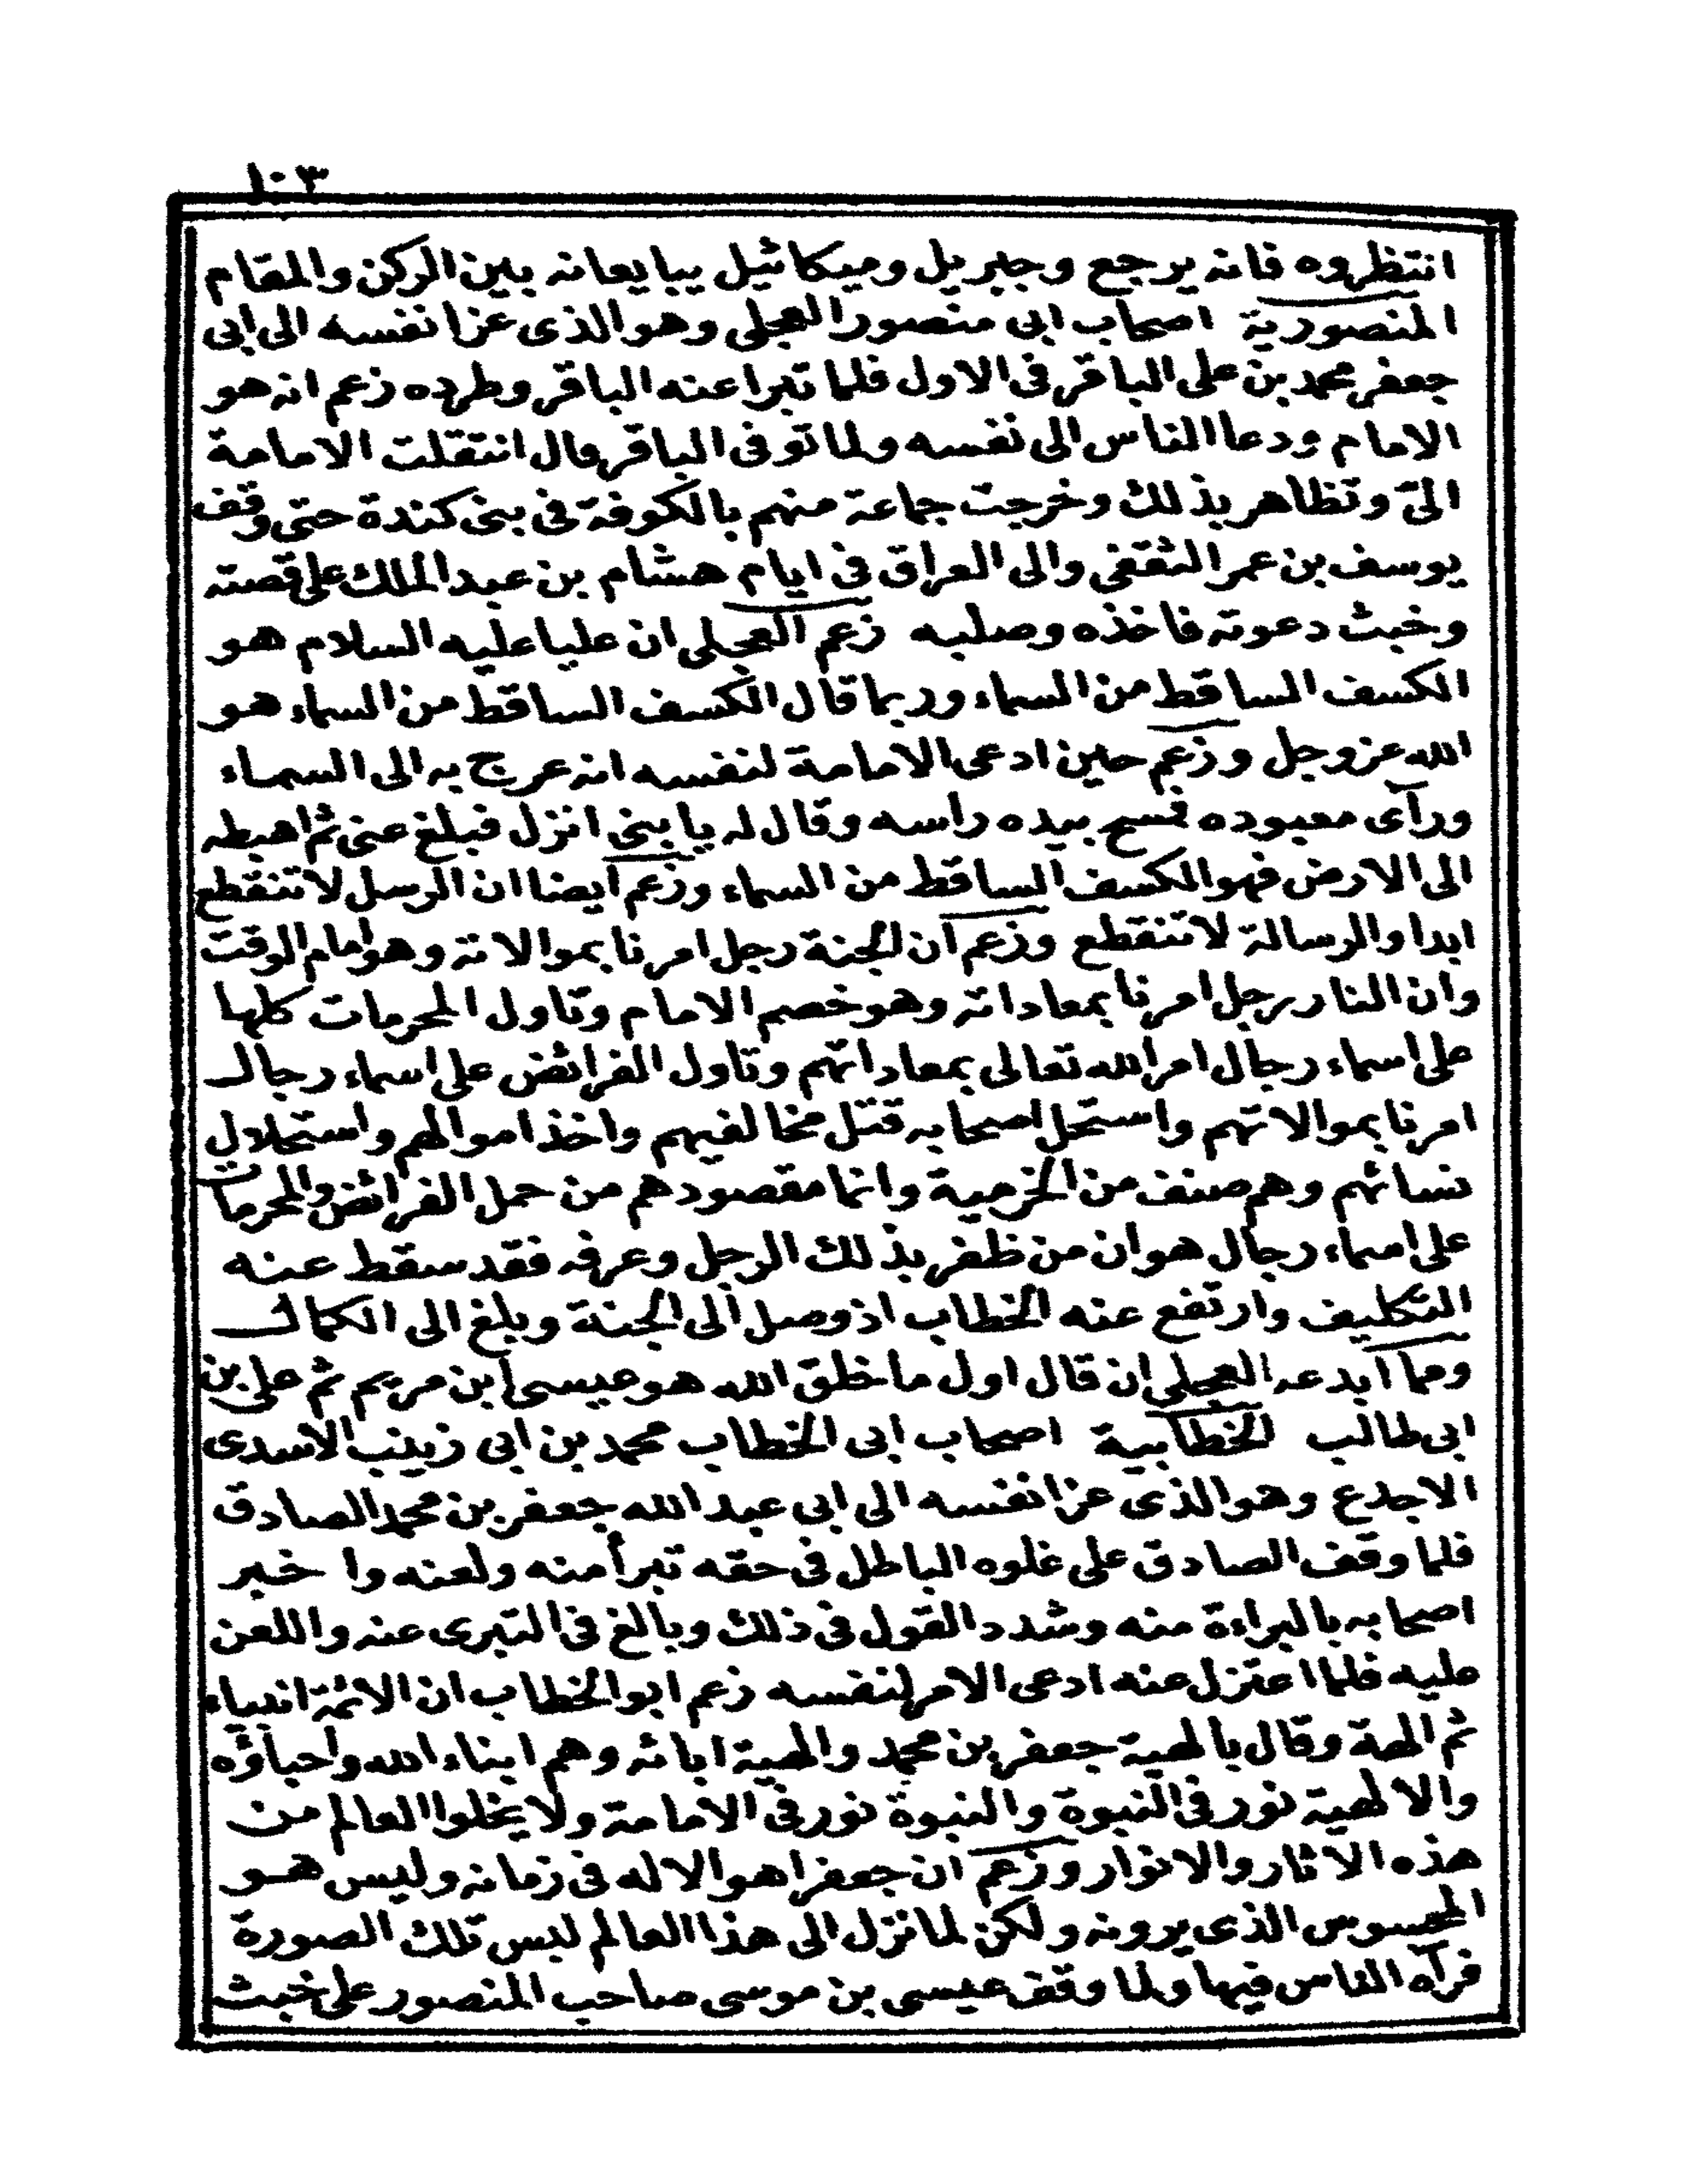 ١٠٣
انتظروه فانه يرجع وجبريل وميكائيل يبايعانه بين الركن والمقام
المنصورية اصحاب ابى منصور العجلى وهو الذى عزا نفسه الى ابى
جعفر محمد بن على الباقر فى الاول فلما تبرا عنه الباقر وطرده زعم انه هو
الامام ودعا الناس الى نفسه ولما توفى الباقر قال انتقلت الامامة
الىّ وتظاهر بذلك وخرجت جماعة منهم بالكوفة فى بنى كندة حتى وقف
يوسف بن عمر الثقفى والى العراق فى ايام هشام بن عبد الملك على قصته
وخبث دعوته فاخذه وصلبه زعم العجلى ان عليا عليه السلام هو
الكسف الساقط من السماء وربما قال الكسف الساقط من السماء هو
الله عز وجل وزعم حين ادعى الامامة لنفسه انه عرج به الى السماء
ورآى معبوده فمسح بيده راسه وقال له يا بنى انزل فبلغ عنى ثم اهبطه
الى الارض فهو الكسف الساقط من السماء وزعم ايضا ان الرسل لا تنقطع
ابدا والرسالة لا تنقطع وزعم ان الجنة رجل امرنا بموالاته وهو امام الوقت
وان النار رجل امرنا بمعاداته وهو خصم الامام وتاول المحرمات كلها
على اسماء رجال امر الله تعالى بمعاداتهم وتاول الفرائض على اسماء رجال
امرنا بموالاتهم واستحل اصحابه قتل مخالفيهم واخذ اموالهم واستحلال
نسائهم وهم صنف من الخرمية وانما مقصودهم من حمل الفرائض والمحرمات
على اسماء رجال هو ان من ظفر بذلك الرجل وعرفه فقد سقط عنه
التكليف وارتفع عنه الخطاب اذ وصل الى الجنة وبلغ الى الكمال
ومما ابدعه العجلى ان قال اول ما خلق الله هو عيسى ابن مريم ثم على بن
ابى طالب الخطابية اصحاب ابى الخطاب محمد بن ابى زينب الاسدى
الاجدع وهو الذى عزا نفسه الى ابى عبد الله جعفر بن محمد الصادق
فلما وقف الصادق على غلوه الباطل فى حقه تبرأ منه ولعنه وا خبر
اصحابه بالبراءة منه وشدد القول فى ذلك وبالغ فى التبرى عنه واللعن
عليه فلما اعتزل عنه ادعى الامر لنفسه زعم ابو الخطاب ان الائمة انبياء
ثم الهة وقال بالهية جعفر بن محمد والهية ابائه وهم ابناء الله واحباؤه
والالهية نور فى النبوة والنبوة نور فى الامامة ولا يخلوا العالم من
هذه الاثار والانوار وزعم ان جعفرا هو الاله فى زمانه وليس هو
المحسوس الذى يرونه ولكن لما نزل الى هذا العالم لبس تلك الصورة
فرآه الناس فيها ولما وقف عيسى بن موسى صاحب المنصور على خبث